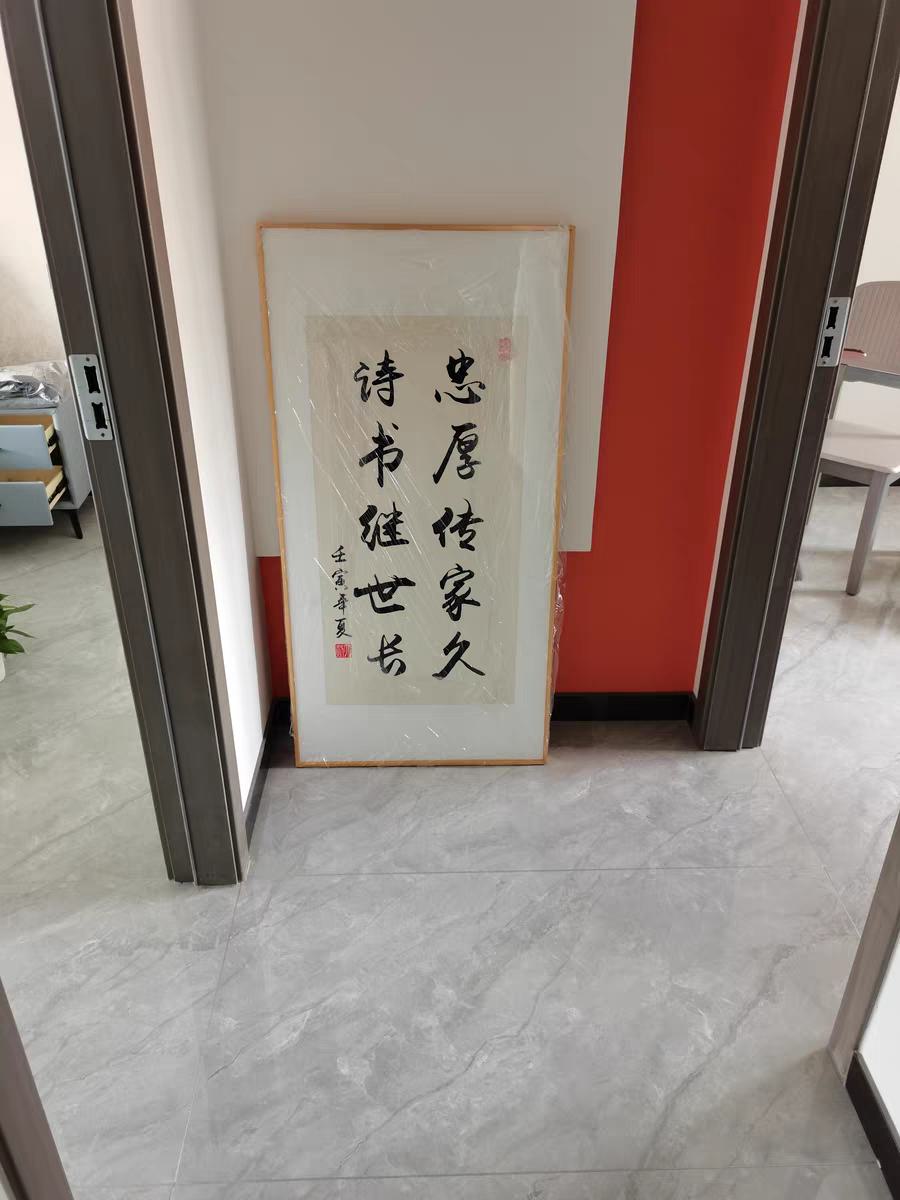 忠厚传家久
诗书继世长
壬寅年夏